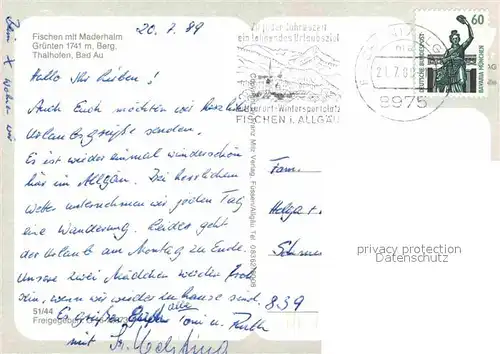 Fischen mit Maderhalm
Grünten 1741 m, Berg,
Thalhofen, Bad Au
20. 7. 89
Zu jeder Jahreszeit
ein lohnendes Urlaubsziel
Luftkurort · Wintersportplatz
FISCHEN i. ALLGÄU
21.7.89
8975
60
DEUTSCHE BUNDESPOST
BAVARIA MÜNCHEN
Hallo Ihr Lieben!
Auch Euch möchten wir herzliche
Urlaubsgrüße senden.
Es ist wieder einmal wunderschön
hier im Allgäu. Bei herrlichem
Wetter unternehmen wir jeden Tag
eine Wanderung. Leider geht
der Urlaub am Montag zu Ende.
Unsere zwei Mädchen werden froh
sein, wenn wir wieder im hause sind.
Es grüßen alle
Toni u.
mit
Hier X wohnen wir
51/44
Freigegeben
Franz Milz Verlag, Füssen/Allgäu Tel.
Fam.
Helga +
839
privacy protection
Datenschutz